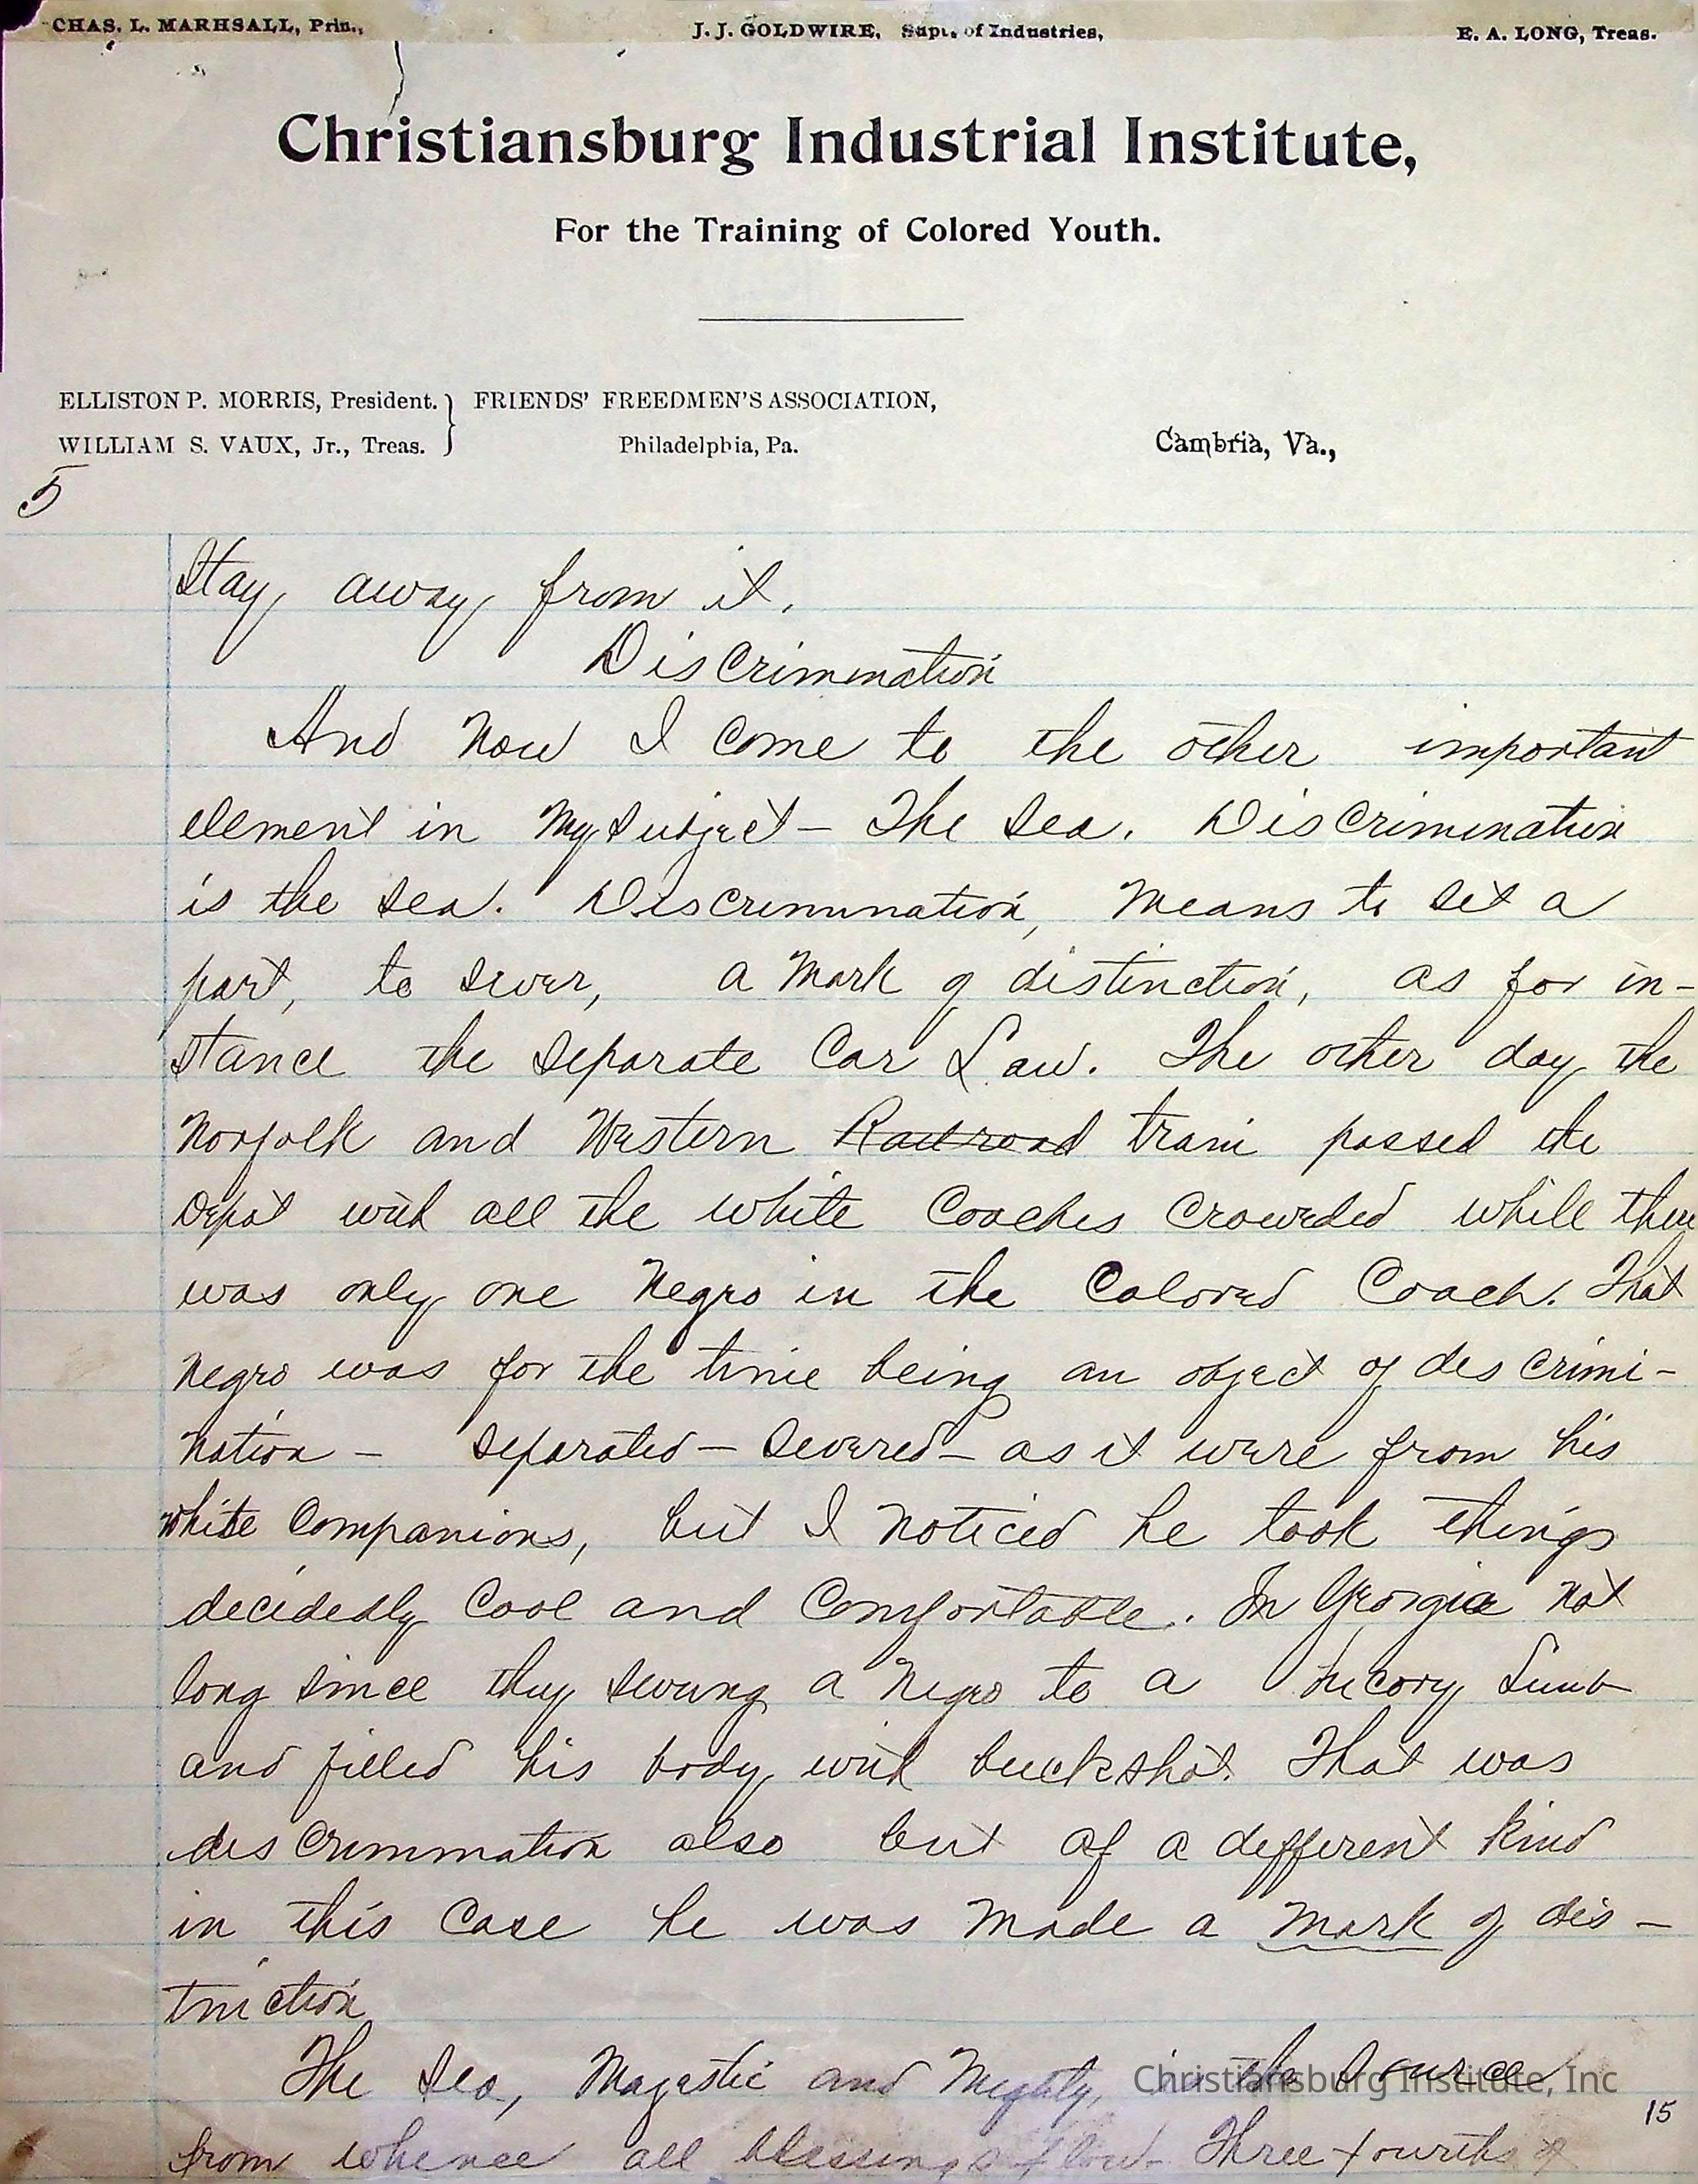 CHAS. L. MARHSALL, Prin., J. J. GOLDWIRE, Supt. of Industries, E. A. LONG, Treas.
Christiansburg Industrial Institute,
For the Training of Colored Youth.
ELLISTON P. MORRIS, President. } FRIENDS' FREEDMEN'S ASSOCIATION,
WILLIAM S. VAUX, Jr., Treas. Philadelphia, Pa. Cambria, Va.,
5
Stay away from it.
Discrimination
And now I come to the other important
element in my subject – The Sea. Discrimination
is the sea. Discrimination, means to set a
part, to sever, a mark of distinction, as for in-
stance the Separate Car Law. The other day the
Norfolk and Western Railroad train passed the
Depot with all the white Coaches crowded while there
was only one Negro in the Colored Coach. That
negro was for the time being an object of descrimi-
nation – separated – severed – as it were from his
white Companions, but I noticed he took things
decidedly cool and comfortable. In Georgia not
long since they swung a Negro to a hicory Limb
and filled his body with buckshot. That was
descrimination also but of a different kind
in this case he was made a mark of dis-
tinction
The Sea, Magestic and Mighty, is the source
from whence all blessings flow – Three fourths of
Christiansburg Institute, Inc
15